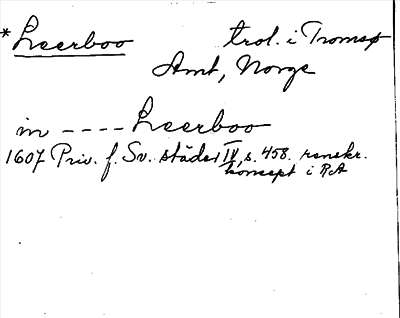 *Leerboo trol. i Tromsø
Amt, Norge
in ---- Leerboo
1607 Priv. f. Sv. städer IV, s. 458. renskr.
koncept i RA